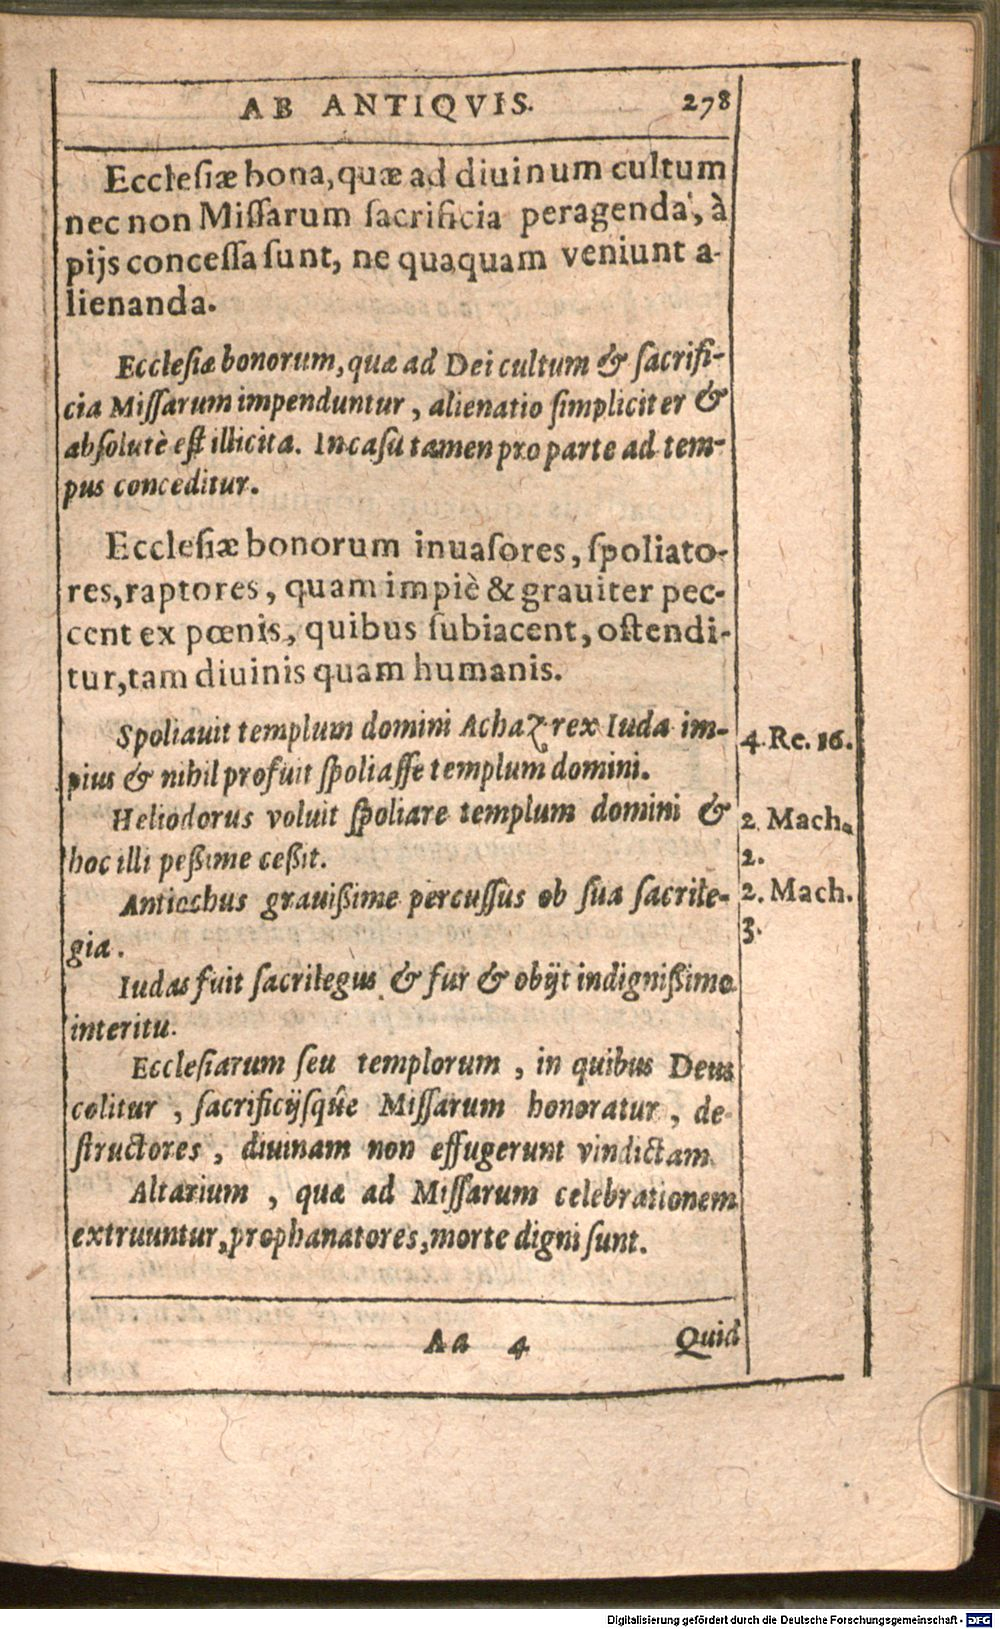 AB ANTIQVIS. 278
Ecclesiæ bona, quæ ad diuinum cultum
nec non Missarum sacrificia peragenda, à
pijs concessa sunt, ne quaquam veniunt a-
lienanda.
Ecclesiæ bonorum, quæ ad Dei cultum & sacrifi-
cia Missarum impenduntur, alienatio simpliciter &
absolutè est illicita. In casu tamen pro parte ad tem-
pus conceditur.
Ecclesiæ bonorum inuasores, spoliato-
res, raptores, quam impiè & grauiter pec-
cent ex pœnis, quibus subiacent, ostendi-
tur, tam diuinis quam humanis.
Spoliauit templum domini Achaz rex Iuda im- 4. Re. 16.
pius & nihil profuit spoliasse templum domini.
Heliodorus voluit spoliare templum domini & 2. Mach.
hoc illi peßime ceßit. 2.
Antiochus grauißime percussus ob sua sacrile- 2. Mach.
gia. 3.
Iudas fuit sacrilegus & fur & obijt indignißimo
interitu.
Ecclesiarum seu templorum, in quibus Deus
colitur, sacrificijsq́ue Missarum honoratur, de-
structores, diuinam non effugerunt vindictam
Altarium, quæ ad Missarum celebrationem
extruuntur, prophanatores, morte digni sunt.
Aa 4 Quid
Digitalisierung gefördert durch die Deutsche Forschungsgemeinschaft - DFG